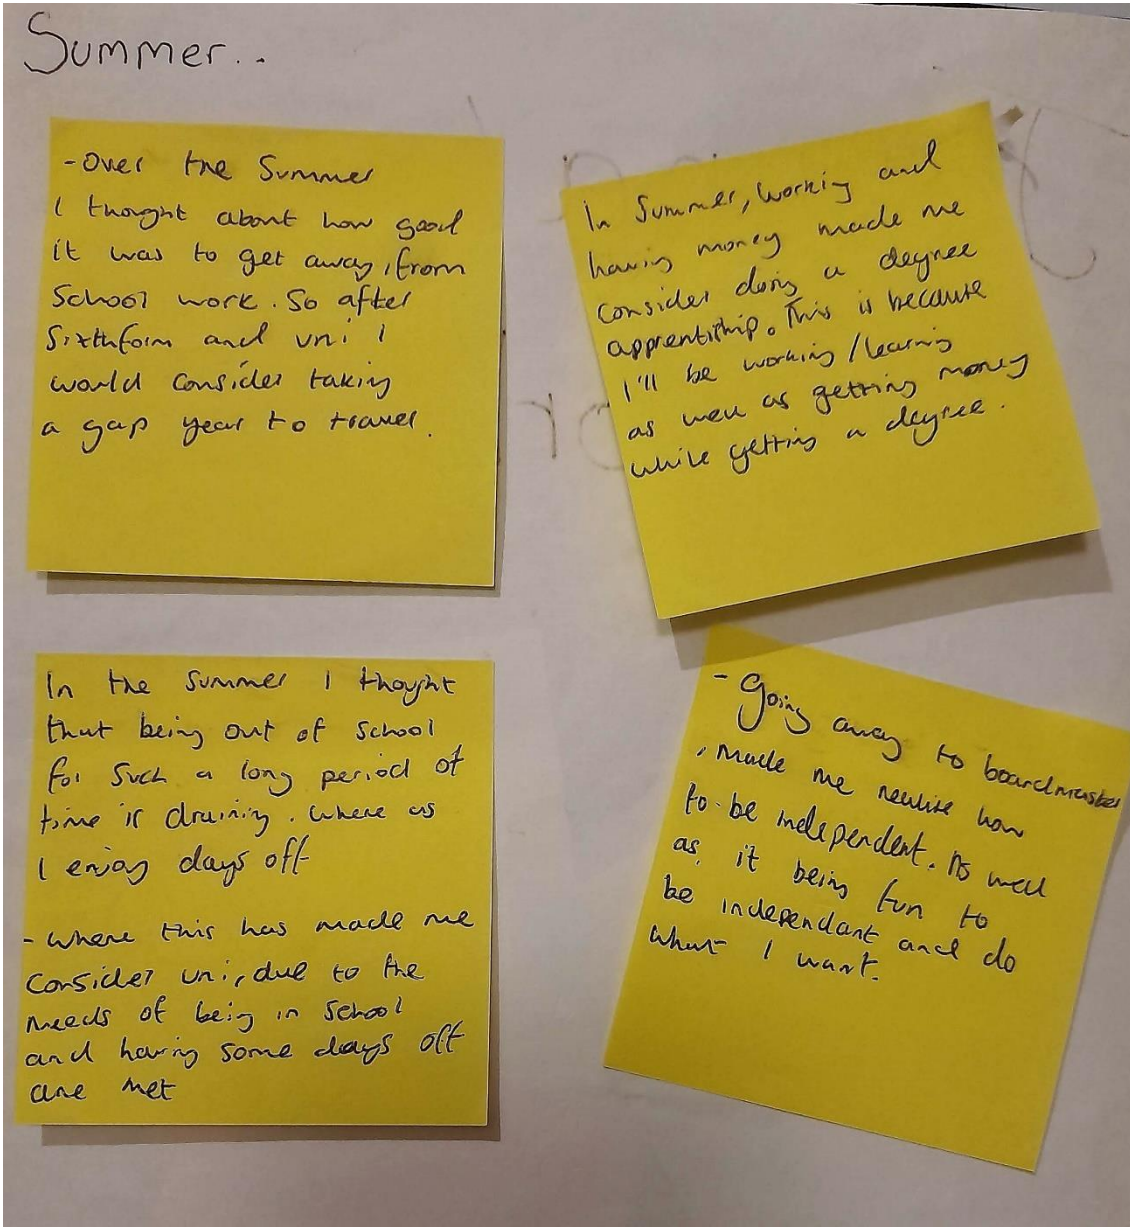 Summer..
- Over the Summer
I thought about how good
it was to get away, from
School work. So after
Sixthform and uni I
would consider taking
a gap year to travel.
In Summer, working and
having money made me
consider doing a degree
apprentiship. This is because
I'll be working/learning
as well as getting money
while getting a degree.
In the summer I thought
that being out of school
for such a long period of
time is draining. where as
I enjoy days off
- where this has made me
consider uni, due to the
needs of being in school
and having some days off
are met
- Going away to boardmasters
, made me realise how
to be independent. As well
as, it being fun to
be independant and do
what I want.